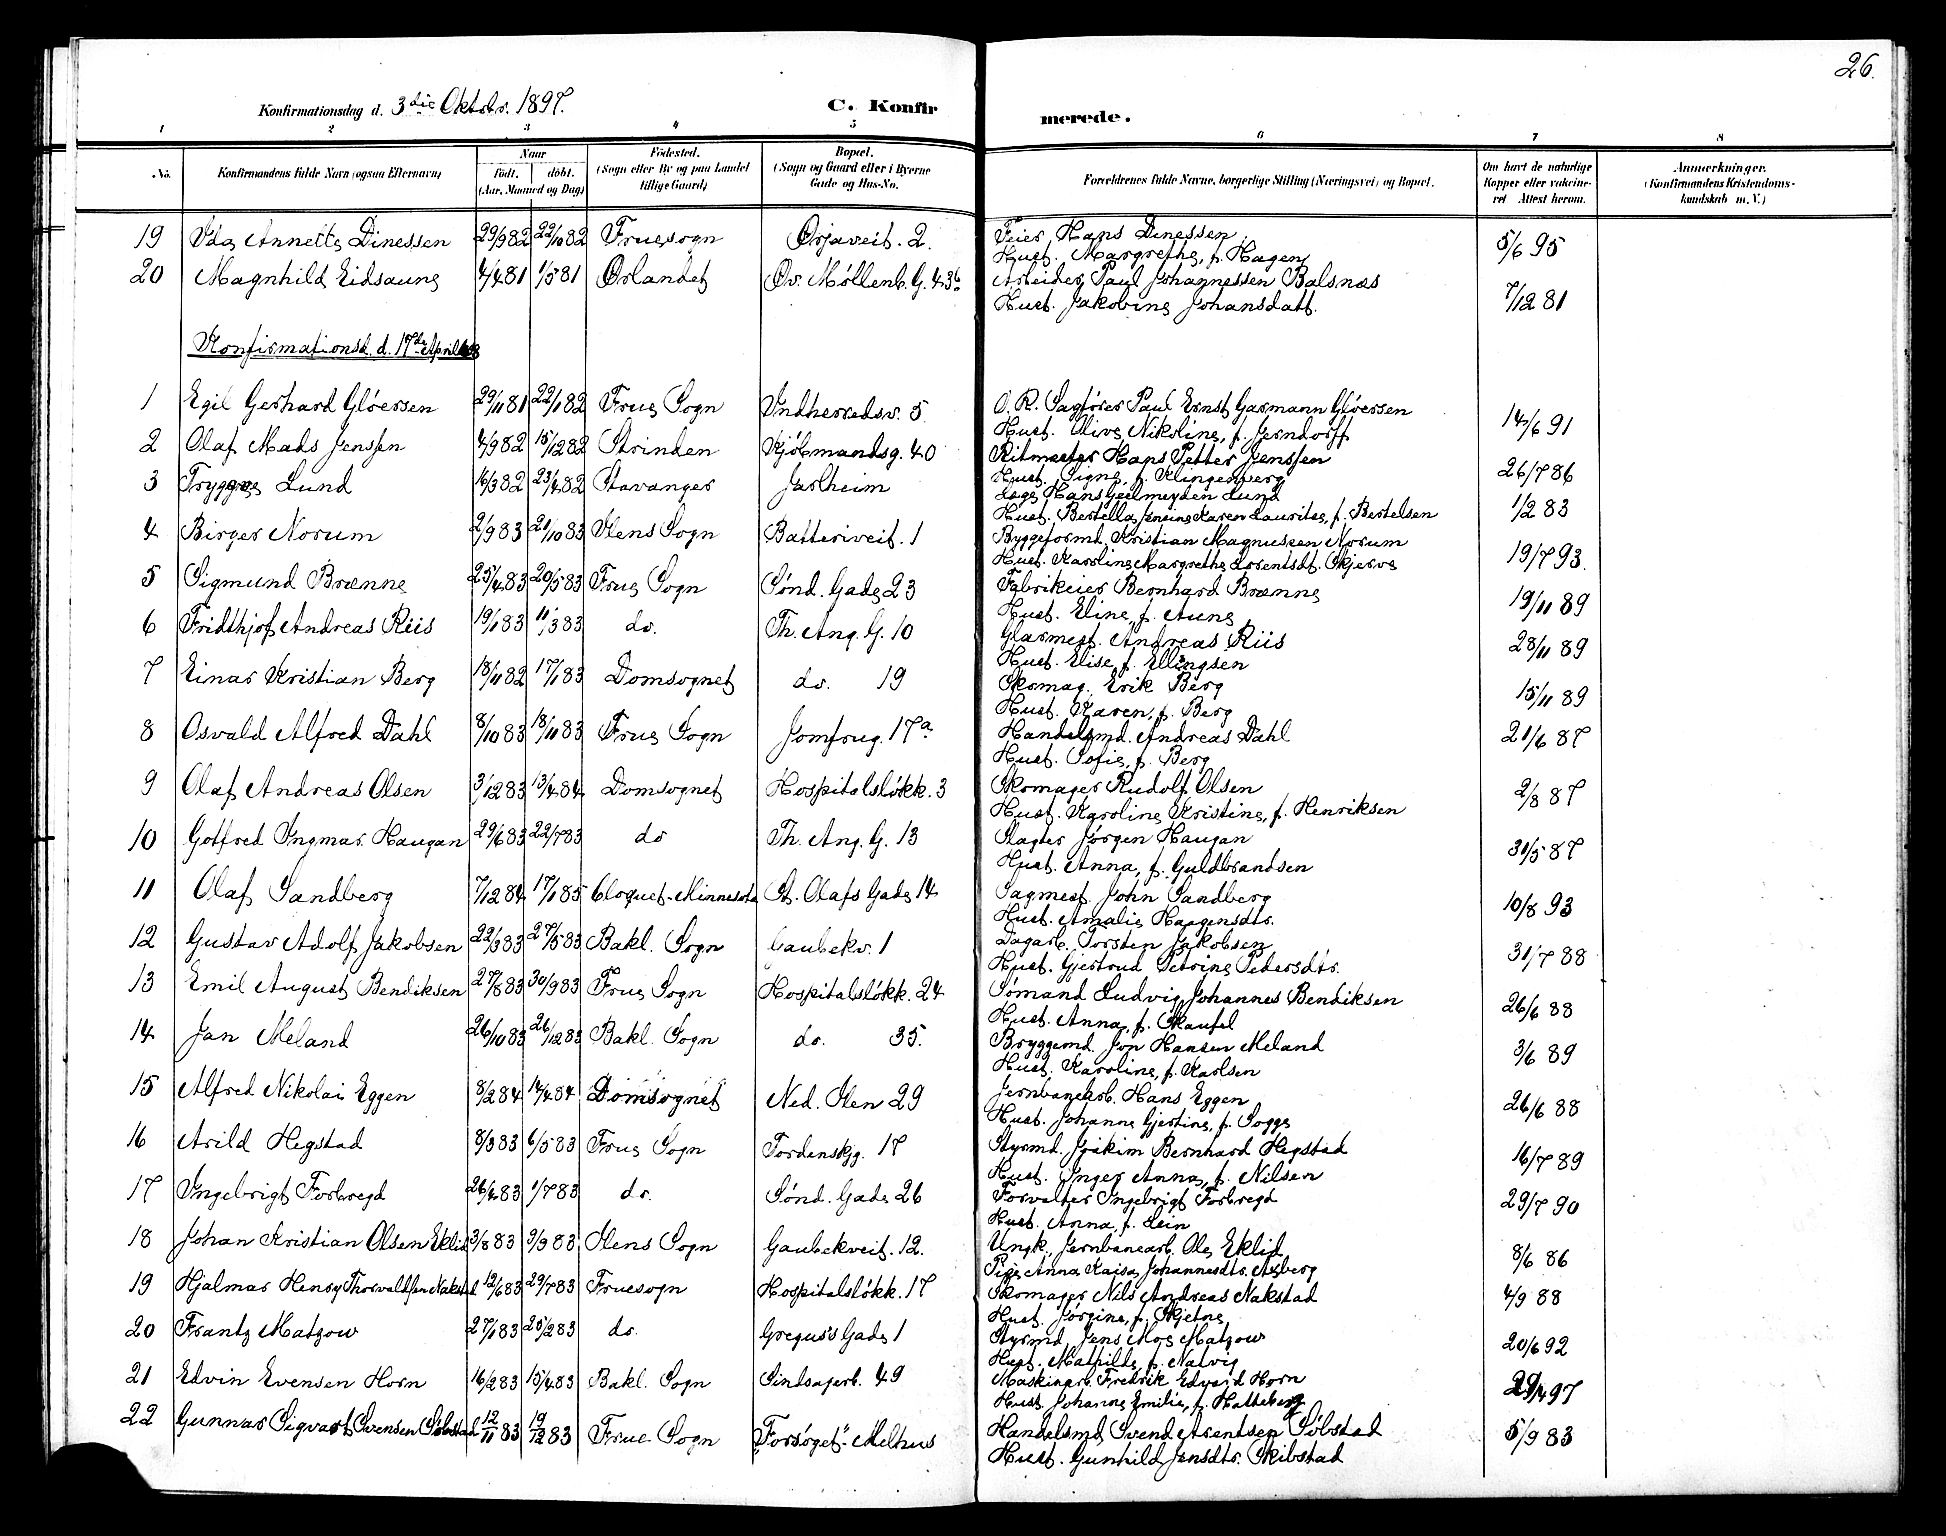 26.
Konfirmationsdag d. 3die Oktbr. 1897.
C. Konfirmerede.
1 2 3 4 5 6 7 8
No. Konfirmandens fulde Navn (ogsaa Efternavn) Naar født. døbt. (Aar, Maaned og Dag) Fødested. (Sogn eller By og paa Landet tillige Gaard) Bopæl. (Sogn og Gaard eller i Byerne Gade og Hus-No. Forældrenes fulde Navne, borgerlige Stilling (Næringsvei) og Bopæl. Om havt de naturlige Kopper eller vakcineret Attest herom. Anmærkninger. (Konfirmandens Kristendomskundskab m. V.)
19 Ida Annette Dinessen 29/9 82 22/10 82 Fruesogn Ørjaveit. 2. Feier Hans Dinessen 5/6 95
Hust. Margrethe, f. Hagen
20 Magnhild Eidsaune 4/4 81 1/5 81 Ørlandet Øv. Møllenb. G. 43b Arbeider Paul Johannessen Balsnæs 7/12 81
Hust. Jakobine Johansdatt.
Konfirmationsd. d. 17de April 1898
1 Egil Gerhard Gløersen 29/11 81 22/1 82 Frue Sogn Indherredsv. 5. O. R. Sagfører Paul Ernst Garmann Gløersen 14/6 91
Hust. Olive Nikoline, f. Jerndorff
2 Olaf Mads Jenssen 4/9 82 15/12 82 Strinden Kjøbmandsg. 40 Ritmester Hans Petter Jenssen 26/7 86
Hust. Signe, f. Klingenberg
3 Tryggve Lund 16/3 82 23/4 82 Stavanger Jarlheim Læge Hans Geelmeyden Lund 1/2 83
Hust. Bertella Jensine Karen Lauritse, f. Bertelsen
4 Birger Norum 2/9 83 21/10 83 Ilens Sogn Batteriveit. 1 Byggeformd. Kristian Magnussen Norum 19/7 93.
Hust. Karoline Margrethe Lorentsdt. Skjerve
5 Sigmund Brænne 25/4 83 20/5 83 Frue Sogn Sönd. Gade 23 Fabrikeier Bernhard Brænne 19/11 89
Hust. Eline, f. Aune
6 Fridthjof Andreas Riis 19/1 83 11/3 83 do. Th. Ang. G. 10 Glarmest. Andreas Riis 28/11 89
Hust. Elise, f. Ellingsen
7 Einar Kristian Berg 18/11 82 17/1 83 Domsognet do. 19 Skomag. Erik Berg 15/11 89
Hust. Karen, f. Berg
8 Osvald Alfred Dahl 8/10 83 18/11 83 Frue Sogn Jomfrug. 17a Handelsmd. Andreas Dahl 21/6 87
Hust. Sofie, f. Berg
9 Olaf Andreas Olsen 3/12 83 13/4 84 Domsognet Hospitalsløkk. 3 Skomager Rudolf Olsen 2/8 87
Hust. Karoline Kristine, f. Henriksen
10 Gotfred Ingmar Haugan 29/6 83 22/7 83 do Th. Ang. G. 13 Slagter Jørgen Haugan 31/5 87
Hust. Anna, f. Guldbrandsen
11 Olaf Sandberg 7/12 84 17/1 85 Cloquet-Minnesota St. Olafs Gade 14 Sagmest. John Sandberg 10/8 93
Hust. Amalie Haagensdtr.
12 Gustav Adolf Jakobsen 22/3 83 27/5 83 Bakl. Sogn Gaubekv. 1 Dagarb. Torsten Jakobsen 31/7 88
Hust. Gjertrud Petrine Pedersdtr.
13 Emil August Bendiksen 27/8 83 30/9 83 Frue Sogn Hospitalsløkk. 24 Sömand Ludvig Johannes Bendiksen 26/6 88
Hust. Anna, f. Skaufel
14 Jan Meland 26/10 83 26/12 83 Bakl. Sogn do. 35. Bryggemd. Jon Hansen Meland 3/6 89
Hust. Karoline, f. Karlsen
15 Alfred Nikolai Eggen 8/2 84 14/4 84 Domsognet Ned. Ilen 29 Jernbanearb. Hans Eggen 26/6 88
Hust. Johanne Gjertine, f. Sogge
16 Arild Hegstad 8/3 83 6/5 83 Frue Sogn Tordenskjg. 17 Styrmd. Joakim Bernhard Hegstad 16/7 89
Hust. Inger Anna, f. Nilsen
17 Ingebrigt Forbregd 26/4 83 1/7 83 do. Sönd. Gade 26 Forvalter Ingebrigt Forbregd 29/7 90
Hust. Anna, f. Lein
18 Johan Kristian Olsen Eklid 3/8 83 9/9 83 Ilens Sogn Gaubekveit. 12. Ungk., Jernbanearb. Ole Eklid 8/6 86
Pige Anna Kaisa Johannesdtr. Asberg
19 Hjalmar Henry Thorvaldsen Nakstad 12/6 83 29/7 83 Fruesogn Hospitalsløkk. 17 Skomager Nils Andreas Nakstad 4/9 88
Hust. Jørgine, f. Skjetne
20 Frantz Matzow 27/1 83 25/2 83 do. Gregus's Gade 1 Styrmd. Jens Moe Matzow 20/6 92
Hust. Mathilde, f. Natvig
21 Edvin Evensen Horn 16/2 83 15/4 83 Bakl. Sogn Sindsagerb. 49 Maskinarb. Fredrik Edvard Horn 29/4 97
Hust. Johanne Emilie, f. Hatteberg
22 Gunnar Sigvart Svensen Søbstad 12/11 83 19/12 83 Frue Sogn "Forsøget"- Melhus Handelsmd. Svend Arentsen Søbstad 5/9 83
Hust. Gunhild Jensdtr. Skibstad